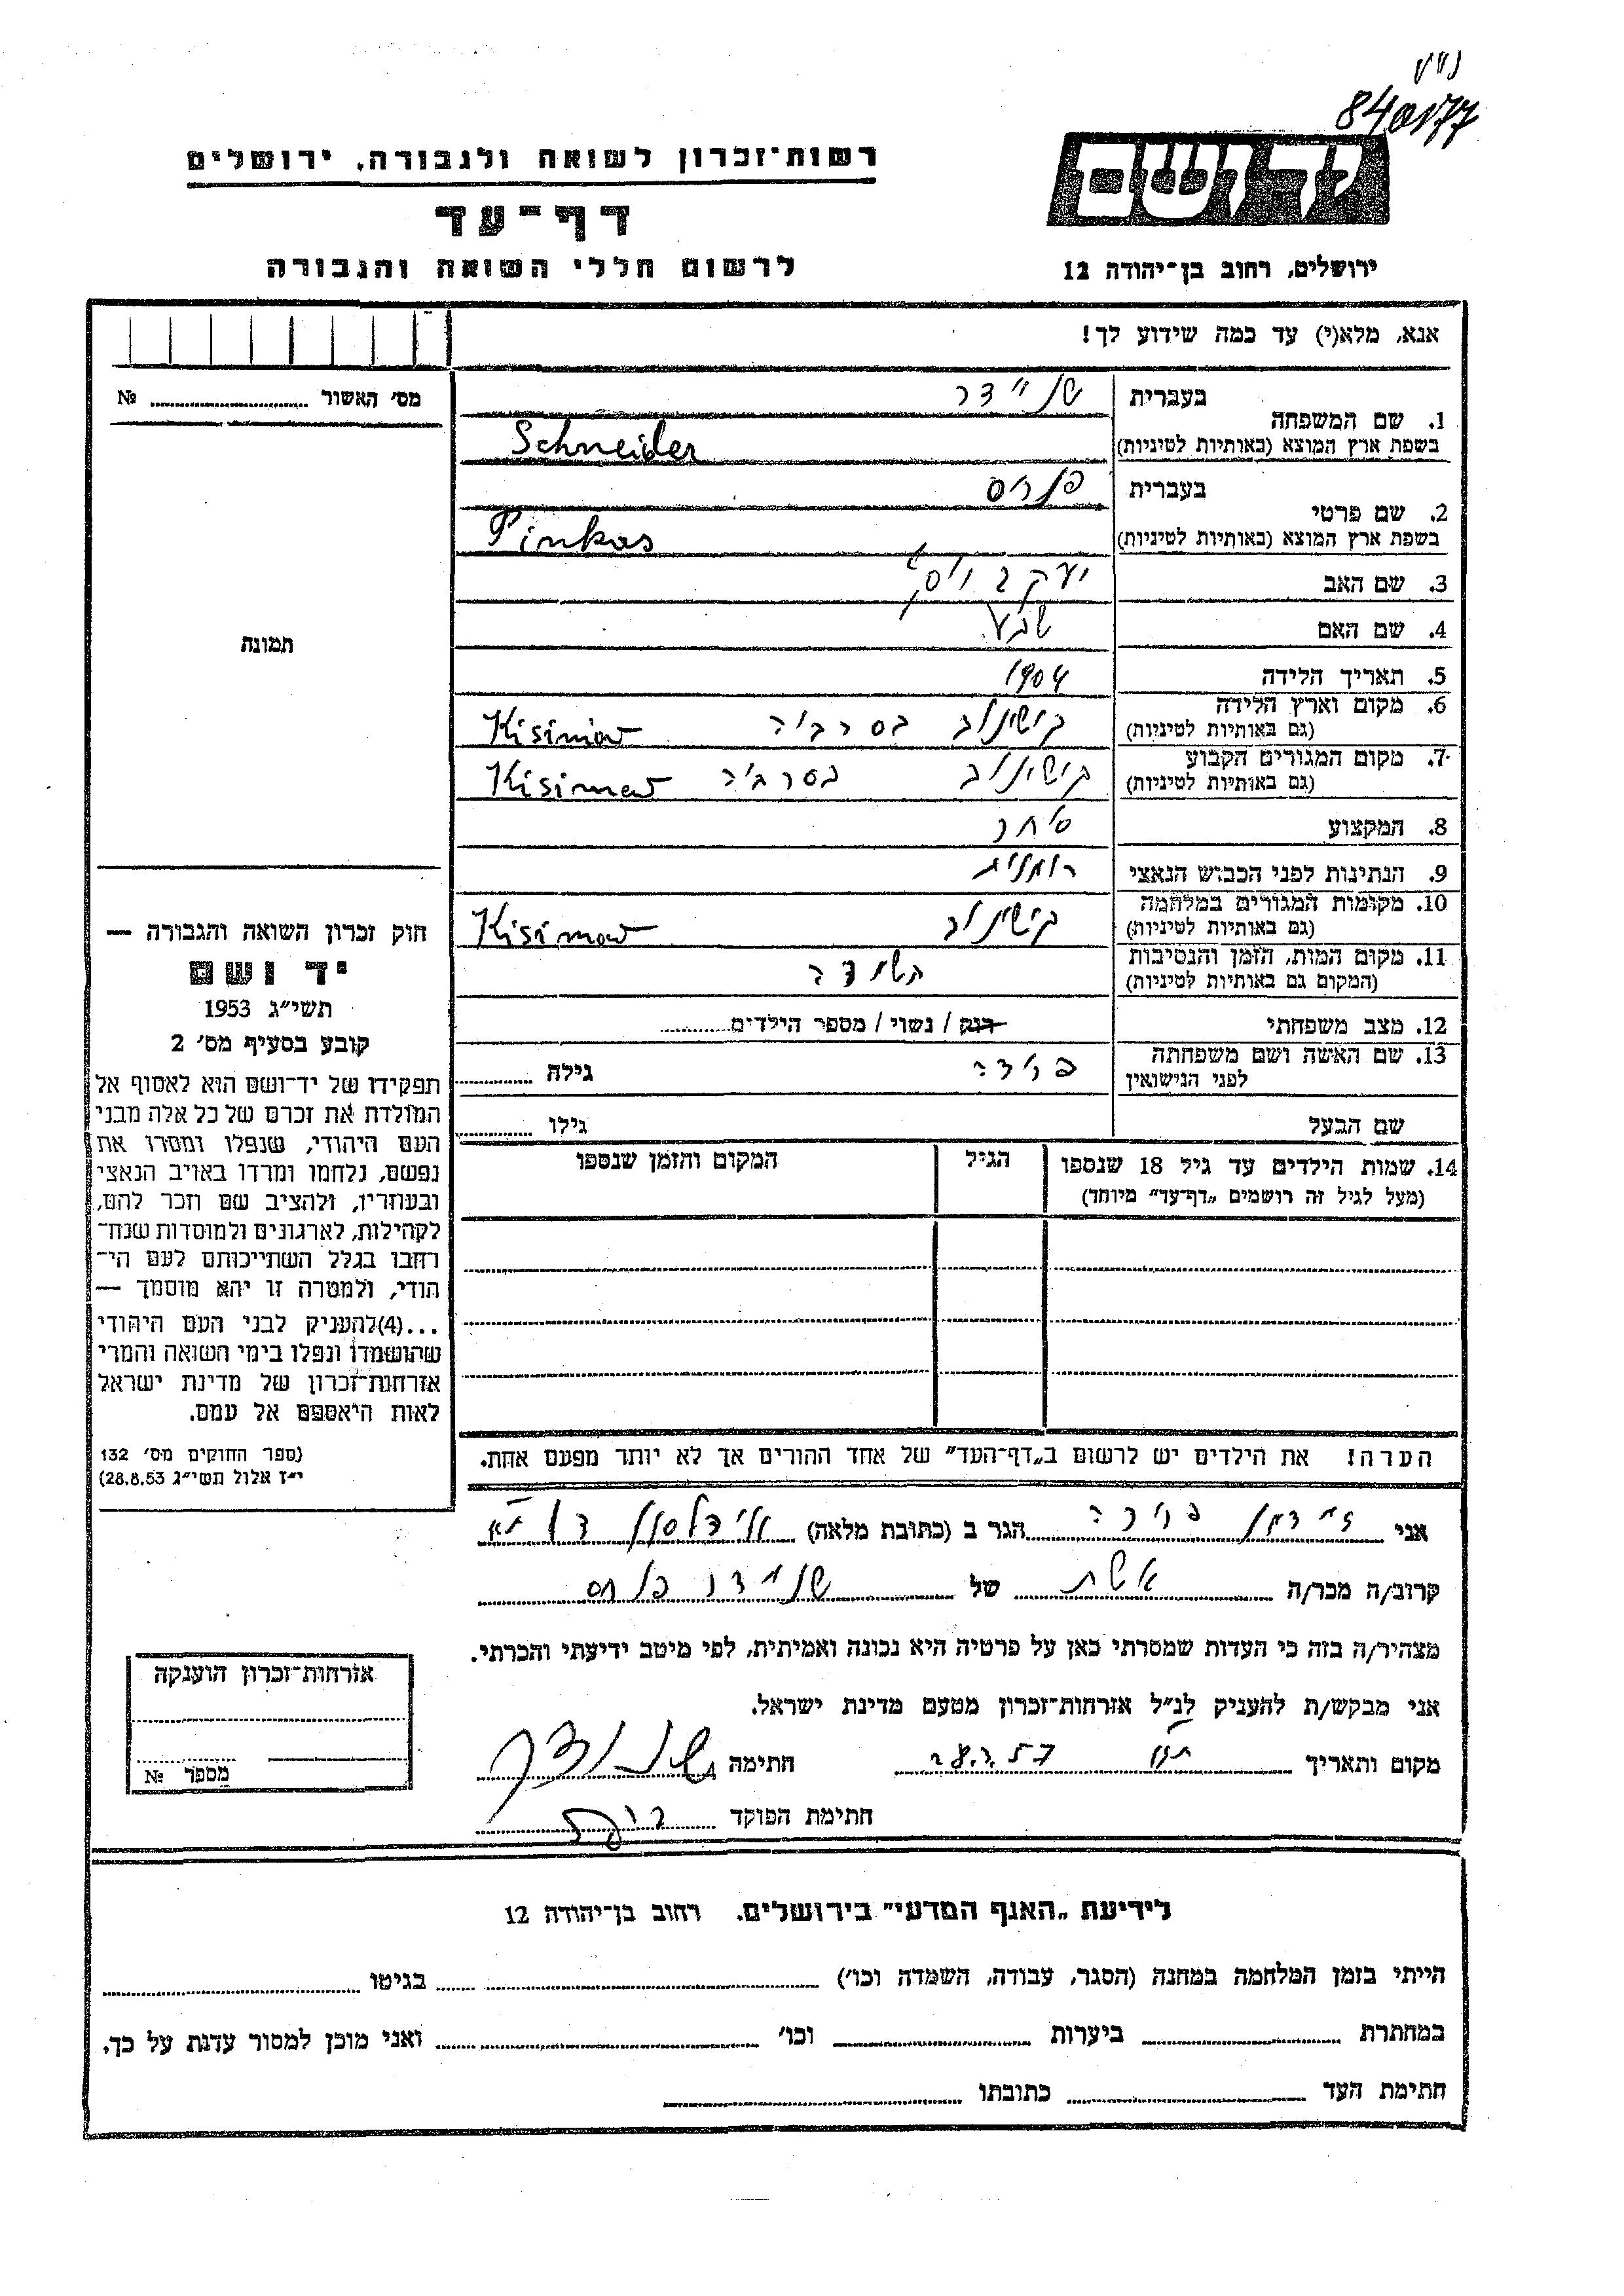 840177
יד ושם
רשות־זכרון לשואה ולגבורה, ירושלים
דף־עד
לרשום חללי השואה והגבורה
ירושלים, רחוב בן־יהודה 12
אנא, מלא(י) עד כמה שידוע לך!
מס׳ האשור № 
תמונה
1. שם המשפחה
בעברית שניידר
בשפת ארץ המוצא (באותיות לטיניות) Schneider
2. שם פרטי
בעברית פנחס
בשפת ארץ המוצא (באותיות לטיניות) Pinkas
3. שם האב יעקב
4. שם האם שבע
5. תאריך הלידה 1904
6. מקום וארץ הלידה קישינוב בסרביה Kisinow
(גם באותיות לטיניות)
7. מקום המגורים הקבוע קישינוב בסרביה Kisinow
(גם באותיות לטיניות)
8. המקצוע סוחר
9. הנתינות לפני הכבוש הנאצי רומנית
10. מקומות המגורים במלחמה קישינוב Kisinow
(גם באותיות לטיניות)
11. מקום המות, הזמן והנסיבות השמדה
(המקום גם באותיות לטיניות)
12. מצב משפחתי רווק / נשוי / מספר הילדים
13. שם האשה ושם משפחתה פרידה גילה
לפני הנישואין
שם הבעל גילו
14. שמות הילדים עד גיל 18 שנספו הגיל המקום והזמן שנספו
(מעל לגיל זה רושמים „דף־עד״ מיוחד)
הערה! את הילדים יש לרשום ב„דף־העד״ של אחד ההורים אך לא יותר מפעם אחת.
חוק זכרון השואה והגבורה —
יד ושם
תשי״ג 1953
קובע בסעיף מס׳ 2
תפקידו של יד־ושם הוא לאסוף אל
המולדת את זכרם של כל אלה מבני
העם היהודי, שנפלו ומסרו את
נפשם, נלחמו ומרדו באויב הנאצי
ובעוזריו, ולהציב שם וזכר להם,
לקהילות, לארגונים ולמוסדות שנח־
רחבו בגלל השתייכותם לעם הי־
הודי, ולמטרה זו יהא מוסמך —
...(4)להעניק לבני העם היהודי
שהושמדו ונפלו בימי השואה והמרי
אזרחות־זכרון של מדינת ישראל
לאות היאספם אל עמם.
(ספר החוקים מס׳ 132
י״ז אלול תשי״ג 28.8.53)
אני פרידה הגר ב (כתובת מלאה)
קרוב/ה מכר/ה אשת של שניידר פנחס
מצהיר/ה בזה כי העדות שמסרתי כאן על פרטיה היא נכונה ואמיתית, לפי מיטב ידיעתי והכרתי.
אני מבקש/ת להעניק לנ״ל אזרחות־זכרון מטעם מדינת ישראל.
מקום ותאריך חתימה
חתימת הפוקד
אזרחות־זכרון הוענקה
מספר №
לידיעת „האגף המדעי״ בירושלים. רחוב בן־יהודה 12
הייתי בזמן המלחמה במחנה (הסגר, עבודה, השמדה וכו׳) בגיטו
במחתרת ביערות וכו׳ ואני מוכן למסור עדות על כך.
חתימת העד כתובתו